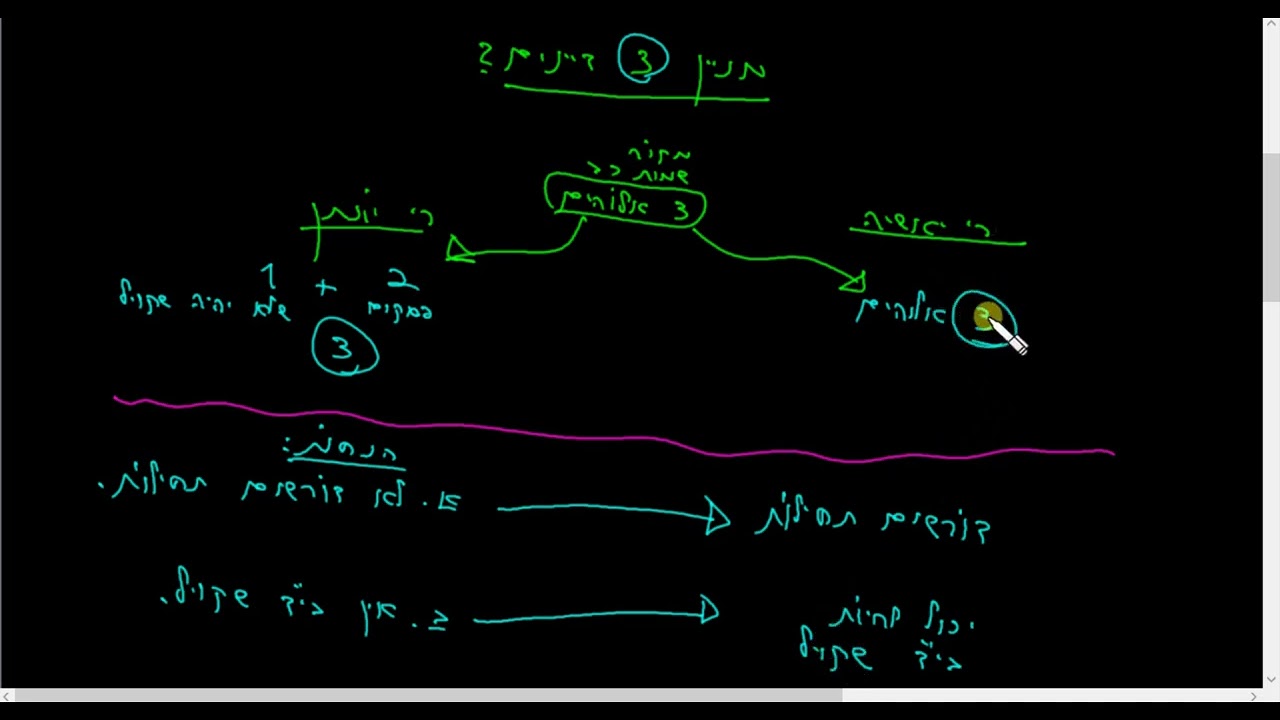 מניין 3 דיינים?
מקור
שמות כב
3 אלוהים
ר' יאשיה
ר' יונתן
3 אלוהים
2 + 1
במקום שלא יהיה שקול
3
הנחות:
א. לא דורשים תחילות.
דורשים תחילות
ב. אין בי"ד שקול.
יכול להיות
בי"ד שקול